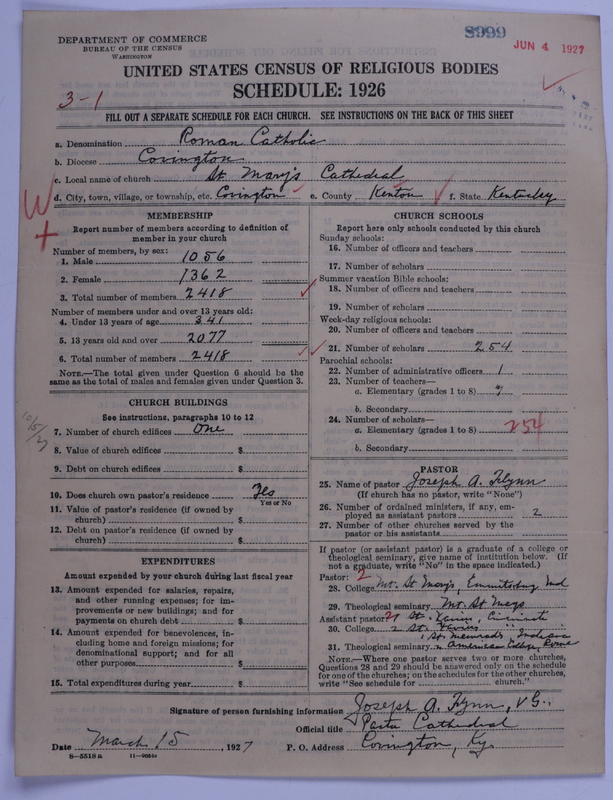 DEPARTMENT OF COMMERCE
BUREAU OF THE CENSUS
WASHINGTON
8999
JUN 4 1927
UNITED STATES CENSUS OF RELIGIOUS BODIES
SCHEDULE: 1926
3-1
FILL OUT A SEPARATE SCHEDULE FOR EACH CHURCH. SEE INSTRUCTIONS ON THE BACK OF THIS SHEET
a. Denomination Roman Catholic
b. Diocese Covington
c. Local name of church St Mary's Cathedral
d. City, town, village, or township, etc. Covington e. County Kenton f. State Kentucky
W
MEMBERSHIP
Report number of members according to definition of member in your church
Number of members, by sex:
1. Male 1056
2. Female 1362
3. Total number of members 2418
Number of members under and over 13 years old:
4. Under 13 years of age 341
5. 13 years old and over 2077
6. Total number of members 2418
NOTE.—The total given under Question 6 should be
same as the total of males and females given under Question 3.
CHURCH BUILDINGS
See instructions, paragraphs 10 to 12
7. Number of church edifices One
8. Value of church edifices $
9. Debt on church edifices $
10. Does church own pastor's residence Yes
Yes or No
11. Value of pastor's residence (if owned by
church) $
12. Debt on pastor's residence (if owned by
church) $
EXPENDITURES
Amount expended by your church during last fiscal year
13. Amount expended for salaries, repairs,
and other running expenses; for im-
provements or new buildings; and for
payments on church debt $
14. Amount expended for benevolences, in-
cluding home and foreign missions; for
denominational support; and for all
other purposes $
15. Total expenditures during year $
CHURCH SCHOOLS
Report here only schools conducted by this church
Sunday schools:
16. Number of officers and teachers
17. Number of scholars
Summer vacation Bible schools:
18. Number of officers and teachers
19. Number of scholars
Week-day religious schools:
20. Number of officers and teachers
21. Number of scholars 254
Parochial schools:
22. Number of administrative officers 1
23. Number of teachers—
a. Elementary (grades 1 to 8) 7
b. Secondary
24. Number of scholars—
a. Elementary (grades 1 to 8) 254
b. Secondary
PASTOR
25. Name of pastor Joseph A. Flynn
(If church has no pastor, write "None")
26. Number of ordained ministers, if any, em-
ployed as assistant pastors 2
27. Number of other churches served by the
pastor or his assistants
If pastor (or assistant pastor) is a graduate of a college or
theological seminary, give name of institution below. (If
not a graduate, write "No" in the space indicated.)
Pastor: 2
28. College Mt. St Mary's, Emmitsburg, Md
29. Theological seminary Mt. St Marys
Assistant pastor: St. Xavier, Cincinnati
30. College St. Xavier
St. Meinrad's Indiana
31. Theological seminary American College, Rome
NOTE.—Where one pastor serves two or more churches,
Questions 28 and 29 should be answered only on the schedule
for one of the churches; on the schedules for the other churches,
write "See schedule for church."
Signature of person furnishing information Joseph A. Flynn, V.G.
Official title Pastor Cathedral
Date March 15, 1927 P. O. Address Covington, Ky.